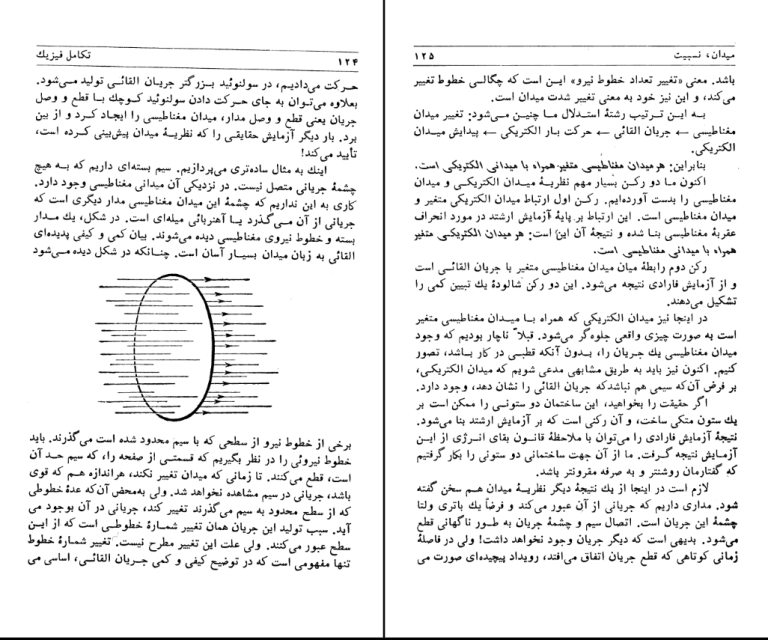 ۱۲۴ تکامل فیزیک
حرکت می‌دادیم، در سولنوئید بزرگتر جریان القائی تولید می‌شود.
بعلاوه می‌توان به جای حرکت دادن سولنوئید کوچک با قطع و وصل
جریان یعنی قطع و وصل مدار، میدان مغناطیسی را ایجاد کرد و از بین
برد. بار دیگر آزمایش حقایقی را که نظریهٔ میدان پیش‌بینی کرده است،
تأیید می‌کند!
اینک به مثال ساده‌تری می‌پردازیم. سیم بسته‌ای داریم که به هیچ
چشمهٔ جریانی متصل نیست. در نزدیکی آن میدانی مغناطیسی وجود دارد.
کاری به این نداریم که چشمهٔ این میدان مغناطیسی مدار دیگری است که
جریانی از آن می‌گذرد یا آهنربائی میله‌ای است. در شکل، یک مدار
بسته و خطوط نیروی مغناطیسی دیده می‌شوند. بیان کمی و کیفی پدیده‌ای
القائی به زبان میدان بسیار آسان است. چنانکه در شکل دیده می‌شود
برخی از خطوط نیرو از سطحی که با سیم محدود شده است می‌گذرند. باید
خطوط نیروئی را در نظر بگیریم که قسمتی از صفحه را، که سیم حد آن
است، قطع می‌کنند. تا زمانی که میدان تغییر نکند، هراندازه هم که قوی
باشد، جریانی در سیم مشاهده نخواهد شد. ولی به‌محض آن‌که عدهٔ خطوطی
که از سطح محدود به سیم می‌گذرند تغییر کند، جریانی در آن بوجود می
آید. سبب تولید این جریان همان تغییر شمارهٔ خطوطی است که از این
سطح عبور می‌کنند. ولی علت این تغییر مطرح نیست. تغییر شمارهٔ خطوط
تنها مفهومی است که در توضیح کیفی و کمی جریان القائی، اساسی می
میدان، نسبیت ۱۲۵
باشد. معنی «تغییر تعداد خطوط نیرو» این است که چگالی خطوط تغییر
می‌کند، و این نیز خود به معنی تغییر شدت میدان است.
به این ترتیب رشتهٔ استدلال ما چنین می‌شود: تغییر میدان
مغناطیسی ← جریان القائی ← حرکت بار الکتریکی ← پیدایش میدان
الکتریکی.
بنابراین: هر میدان مغناطیسی متغیر همراه با میدانی الکتریکی است.
اکنون ما دو رکن بسیار مهم نظریهٔ میدان الکتریکی و میدان
مغناطیسی را بدست آورده‌ایم. رکن اول ارتباط میدان الکتریکی متغیر و
میدان مغناطیسی است. این ارتباط بر پایهٔ آزمایش ارشتد در مورد انحراف
عقربهٔ مغناطیسی بنا شده و نتیجهٔ آن این است: هر میدان الکتریکی متغیر
همراه با میدانی مغناطیسی است.
رکن دوم رابطهٔ میان میدان مغناطیسی متغیر با جریان القائی است
و از آزمایش فارادی نتیجه می‌شود. این دو رکن شالودهٔ یک تبیین کمی را
تشکیل می‌دهند.
در اینجا نیز میدان الکتریکی که همراه با میدان مغناطیسی متغیر
است به صورت چیزی واقعی جلوه‌گر می‌شود. قبلاً ناچار بودیم که وجود
میدان مغناطیسی یک جریان را، بدون آنکه قطبی در کار باشد، تصور
کنیم. اکنون نیز باید به طریق مشابهی مدعی شویم که میدان الکتریکی،
بر فرض آن‌که سیمی هم نباشد که جریان القائی را نشان دهد، وجود دارد.
اگر حقیقت را بخواهید، این ساختمان دو ستونی را ممکن است بر
یک ستون متکی ساخت، و آن رکنی است که بر آزمایش ارشتد بنا می‌شود.
نتیجهٔ آزمایش فارادی را می‌توان با ملاحظهٔ قانون بقای انرژی از این
آزمایش نتیجه گرفت. ما از آن جهت ساختمانی دو ستونی را بکار گرفتیم
که گفتارمان روشنتر و به صرفه مقرونتر باشد.
لازم است در اینجا از یک نتیجهٔ دیگر نظریهٔ میدان هم سخن گفته
شود. مداری داریم که جریانی از آن عبور می‌کند و فرضاً یک باتری ولتا
چشمهٔ این جریان است. اتصال سیم و چشمهٔ جریان به طور ناگهانی قطع
می‌شود. بدیهی است که دیگر جریان وجود نخواهد داشت! ولی در فاصلهٔ
زمانی کوتاهی که قطع جریان اتفاق می‌افتد، رویداد پیچیده‌ای صورت می